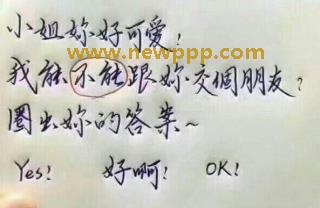 小姐妳好可愛!
www.newppp.com
我能不能跟妳交個朋友?
圈出妳的答案~
Yes! 好啊! OK!